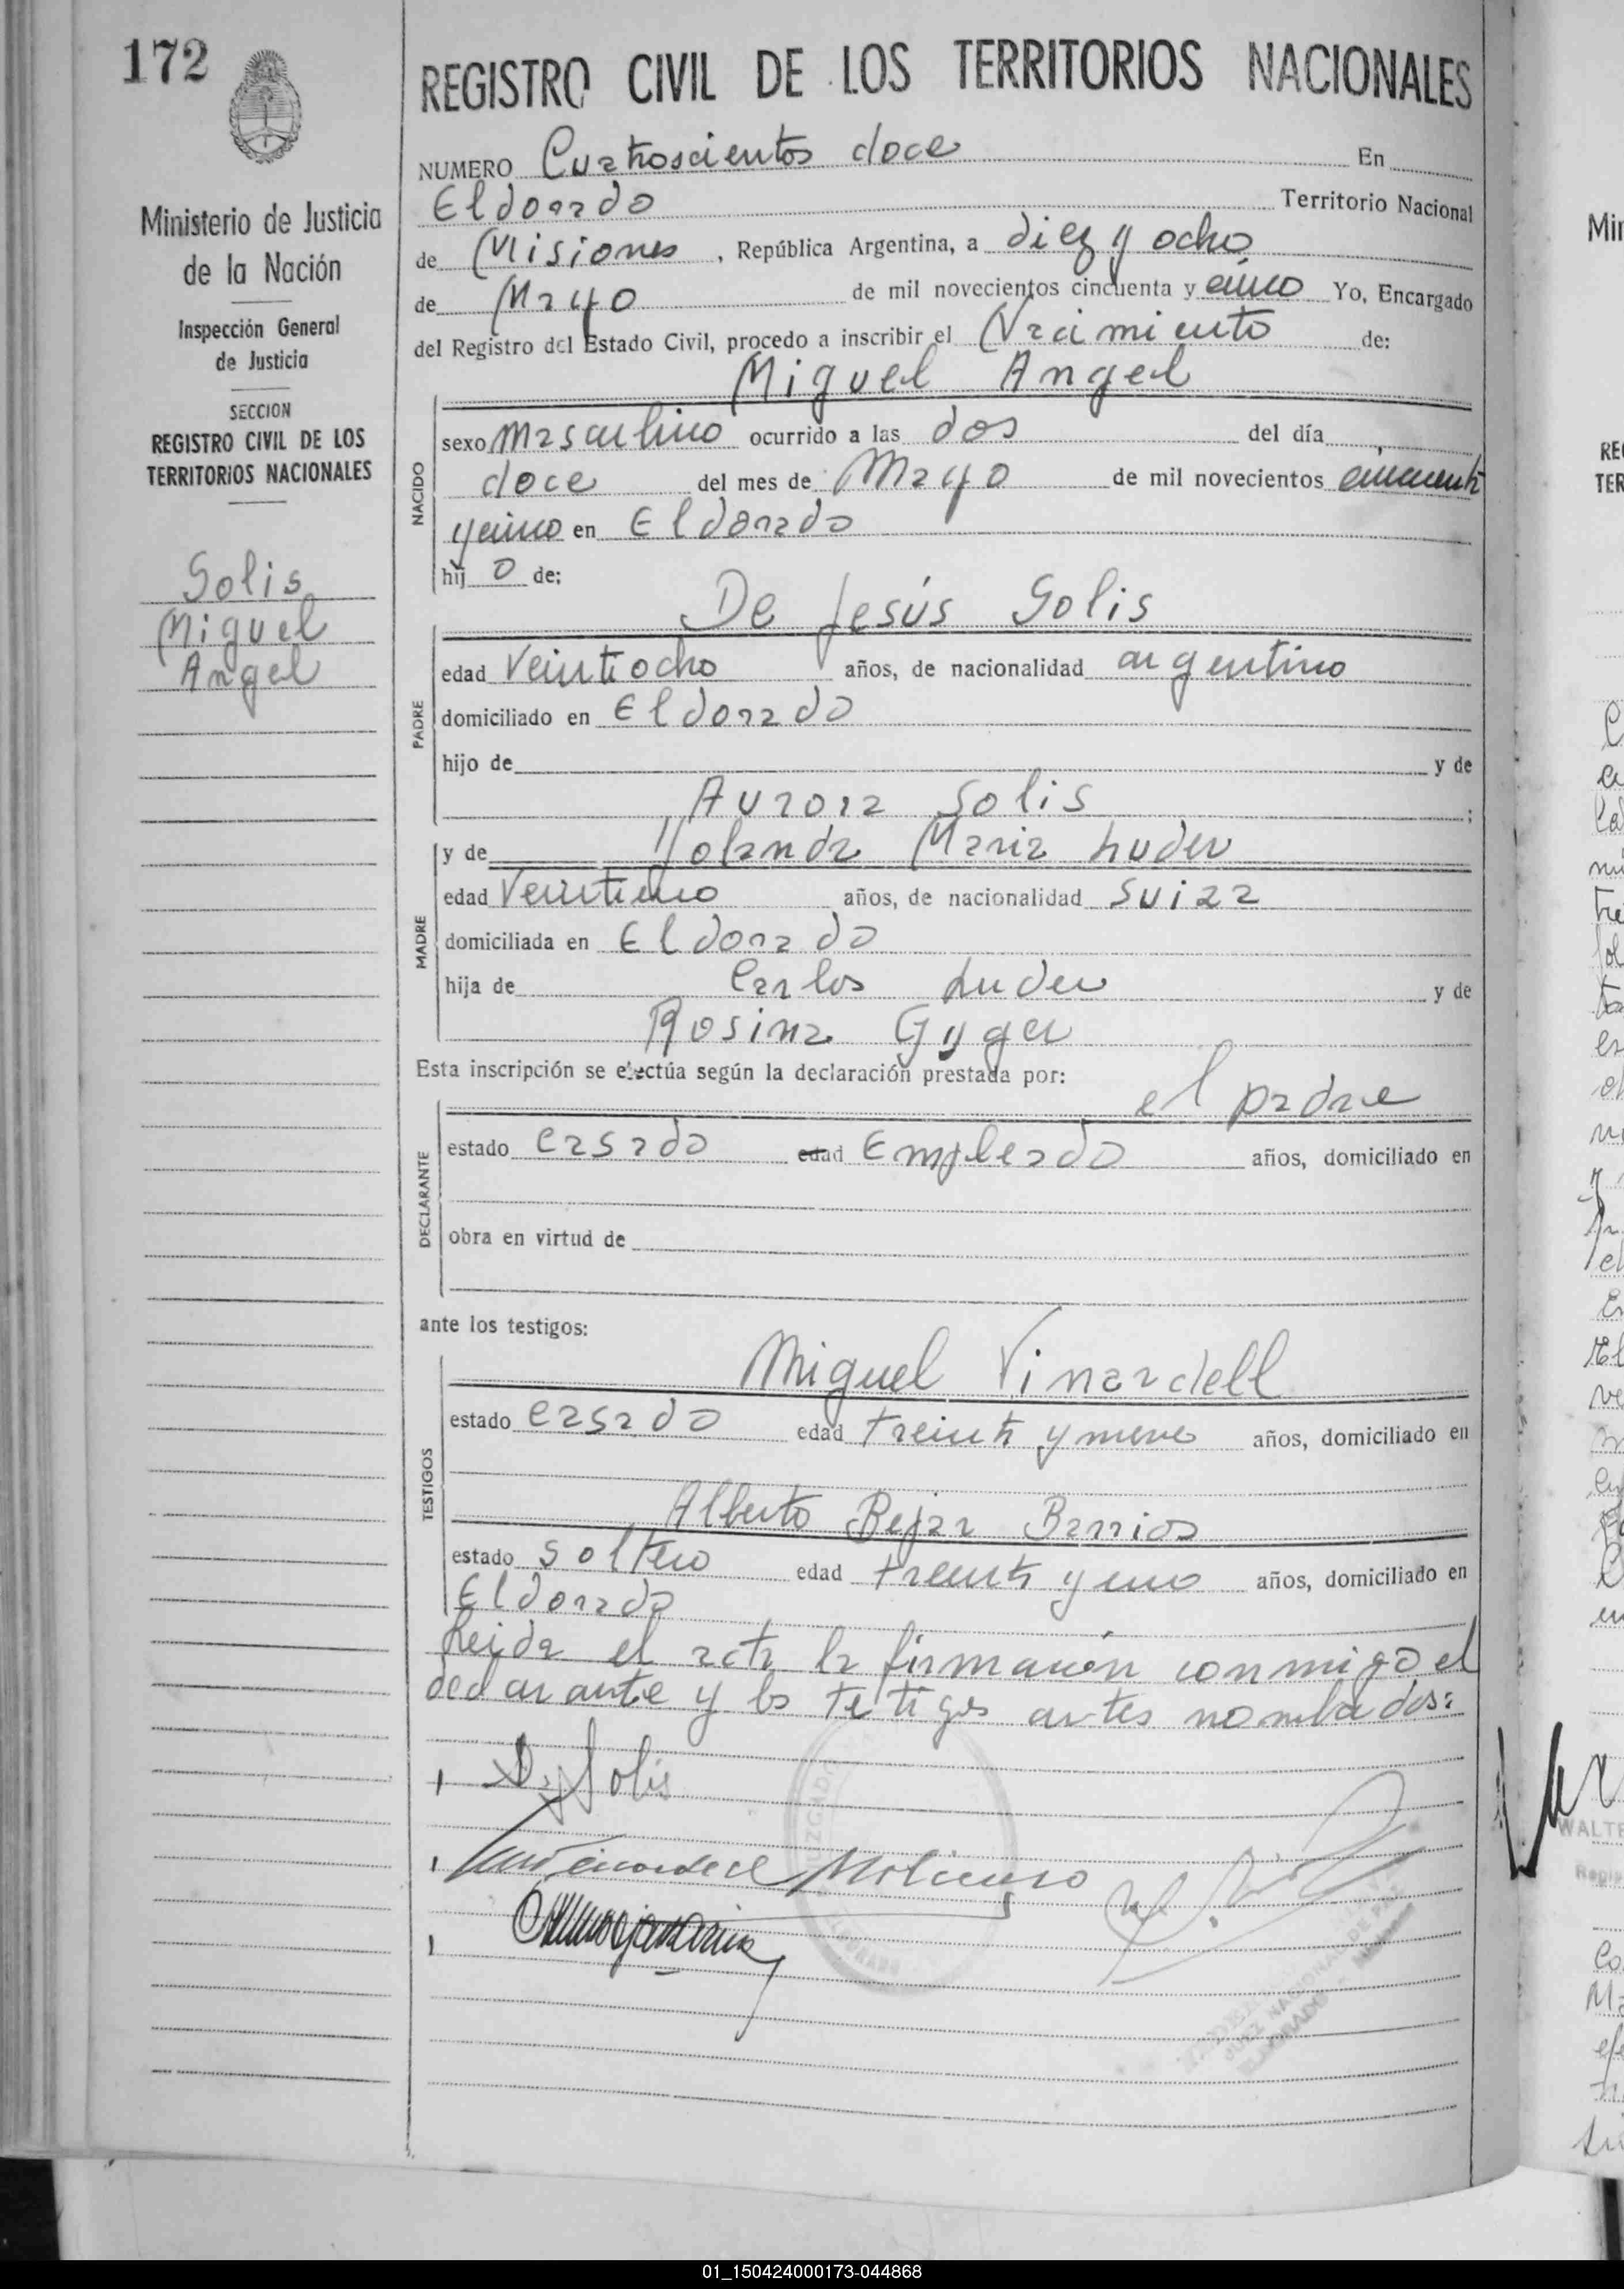 172
REGISTRO CIVIL DE LOS TERRITORIOS NACIONALES
Ministerio de Justicia
de la Nación
Inspección General
de Justicia
SECCION
REGISTRO CIVIL DE LOS
TERRITORIOS NACIONALES
Solis
Miguel
Angel
NUMERO Cuatroscientos doce En
Eldorado Territorio Nacional
de Misiones, República Argentina, a diez y ocho
de Mayo de mil novecientos cincuenta y cinco Yo, Encargado
del Registro del Estado Civil, procedo a inscribir el Nacimiento de:
Miguel Angel
NACIDO
sexo masculino ocurrido a las dos del día
doce del mes de Mayo de mil novecientos cincuenta
y cinco en Eldorado
hij o de:
De Jesús Solis
PADRE
edad Veintiocho años, de nacionalidad argentino
domiciliado en Eldorado
hijo de y de
Aurora Solis ;
y de Yolanda Maria Luder
MADRE
edad Veintiuno años, de nacionalidad Suiza
domiciliada en Eldorado
hija de Carlos Luder y de
Rosina Gyger
Esta inscripción se efectúa según la declaración prestada por:
el padre
DECLARANTE
estado casado edad Empleado años, domiciliado en
obra en virtud de
ante los testigos:
Miguel Vinardell
TESTIGOS
estado casado edad treinta y nueve años, domiciliado en
Alberto Bejar Barrios
estado soltero edad treinta y uno años, domiciliado en
Eldorado
Leida el acta la firmaron conmigo el
declarante y los testigos antes nombrados:
Solis
JUZGADO
ELDORADO
JUEZ NACIONAL DE PAZ
ELDORADO
WALTE
01_150424000173-044868